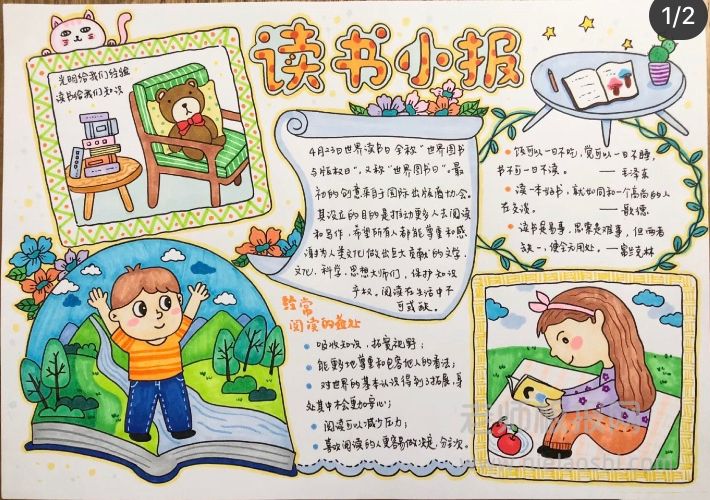 1/2
读书小报
光明给我们经验
读书给我们知识
4月23日世界读书日全称"世界图书
与版权日",又称"世界图书日"。最
初的创意来自于国际出版商协会。
其设立的目的是推动更多人去阅读
和写作,希望所有人都能尊重和感
谢为人类文化做出巨大贡献的文学、
文化、科学、思想大师们,保护知识
产权。阅读在生活中不
可或缺。
饭可以一日不吃,觉可以一日不睡,
书不可一日不读。 ——毛泽东
读一本好书,就如同和一个高尚的人
在交谈。 ——歌德
读书是易事,思索是难事,但两者
缺一,便全无用处。——富兰克林
经常
阅读的益处
吸收知识,拓宽视野;
能更好地尊重和包容他人的看法;
对世界的基本认识得到了拓展,身
处其中会更加安心;
阅读可以减少压力;
喜欢阅读的人更容易做决定、分主次。